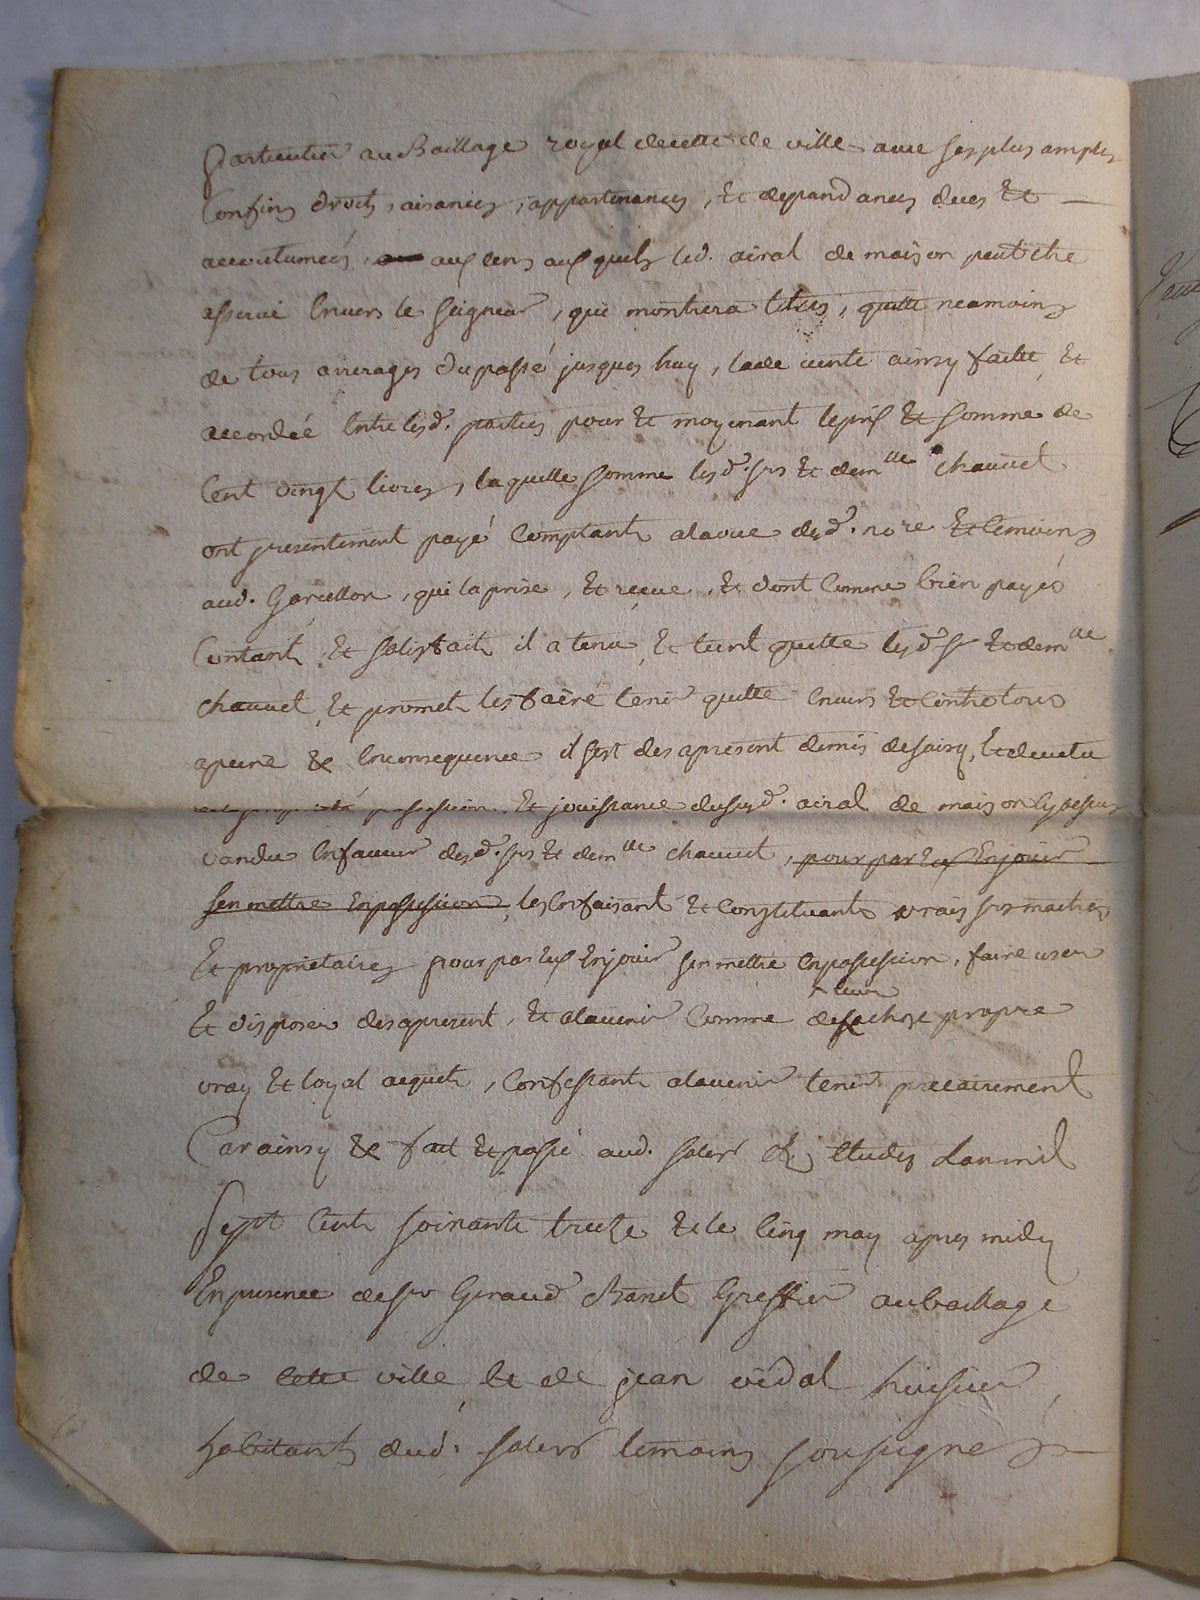 particulier au Baillage royal decette de ville avec ses plus amples
Confins droits, aisances, appartenances, Et depandances dues Et
accoutumées, aux cens aux quels led. airal de maison peut etre
asservi Envers le seigneur, qui montrera titres, quitte neamoins
de tous arrerages du passé jusques huy, lade vente ainsy faitte, Et
accordée Entre lesd. parties pour Et moyenant le prix Et somme de
Cent vingt livres, laquelle somme lesd. srs Et demlle chauvet
ont presentement payé Comptant alavue desd. nore Et temoins
aud. Garcellon, qui la prise, Et reçue, Et dont Comme bien payés
Contant, Et satisfait il a tenu, Et tient quitte lesd. srs Et demlle
chauvet, Et promet les faire tenir quitte Envers Et Contre tous
apeine & Enconsequence il sest des apresent demis desaisy, Et devetu
possession Et jouissance dususd. airal de maison cy dessus
vandu Enfaveur desd. srs Et demlle chauvet, pour par Eux Enjouir
sen mettre Enpossession, les Enfaisant Et Constituant vrais srs maitres
Et proprietaires pour par Eux Enjouir sen mettre Enpossession, faire user
Et disposer desapresent, Et alavenir Comme de leur chose propre
vray Et loyal acquet, Confessant alavenir tenir precairement
Car ainsy & fait Et passé aud. salers Es Etudes Lanmil
Sept Cent soixante treize Et le Cinq may apres midy
Enpresence desr Geraud Banet Greffier aubaillage
de Cette ville Et de jean vidal huissier,
habitants dud. salers temoins sousignés